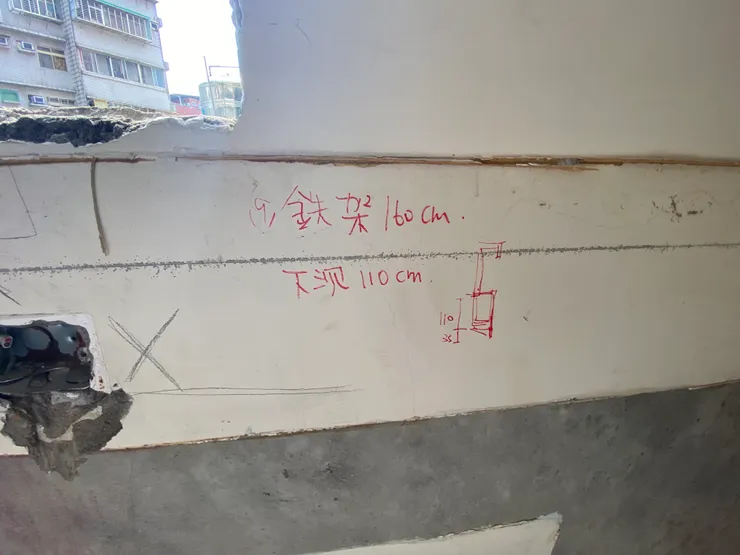 (9) 鉄架 160 cm.
下沉 110 cm.
110
35